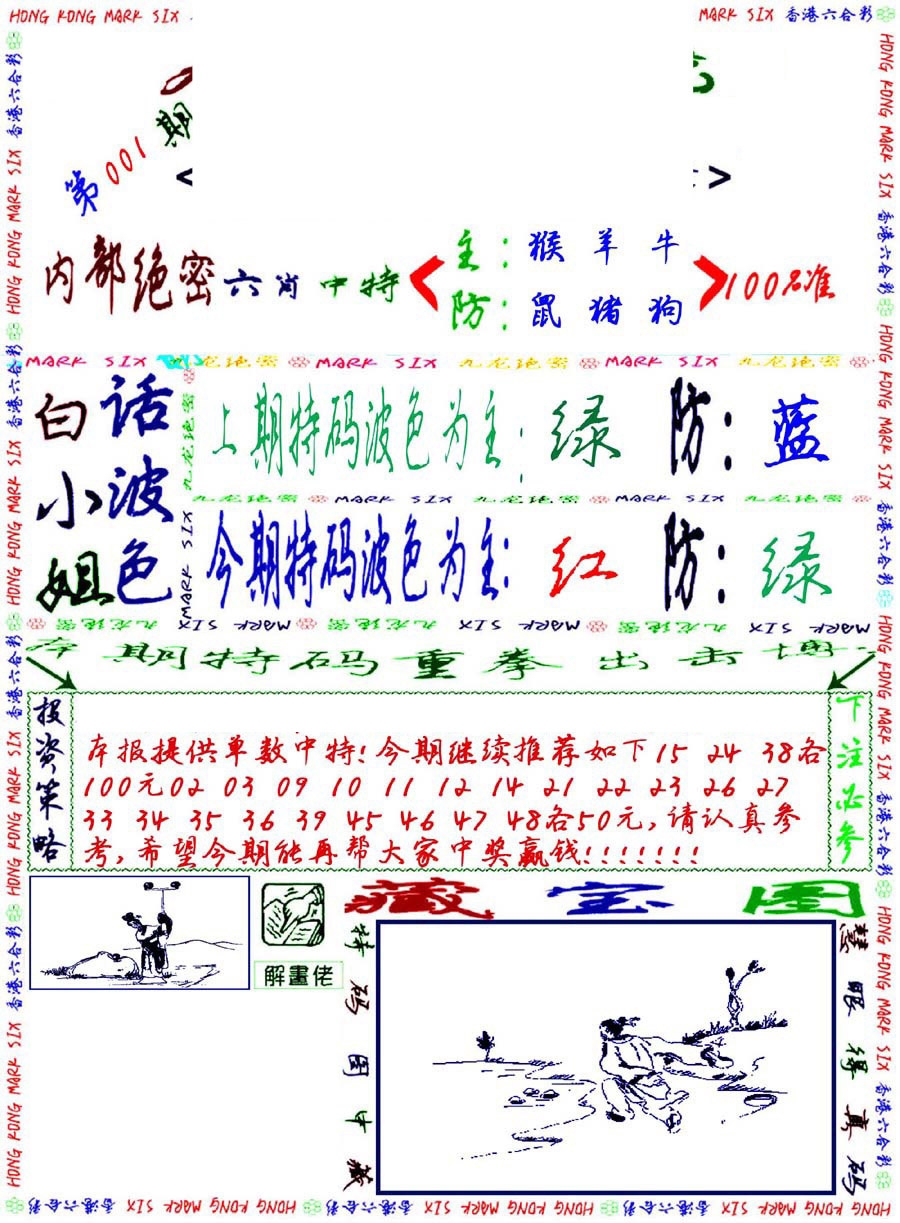 HONG KONG MARK SIX
MARK SIX 香港六合彩
第001期
< >
内部绝密六肖中特
主:猴 羊 牛
防:鼠 猪 狗
100%准
MARK SIX 九龙绝密 MARK SIX 九龙绝密 MARK SIX 九龙绝密
白话
小波
姐色
上期特码波色为主:绿 防:蓝
九龙绝密 MARK SIX 九龙绝密 MARK SIX 九龙绝密
今期特码波色为主:红 防:绿
九龙绝密 MARK SIX 九龙绝密 MARK SIX 九龙绝密 MARK SIX
期特码重拳出击
投资策略
本报提供单数中特!今期继续推荐如下15 24 38各
100元02 03 09 10 11 12 14 21 22 23 26 27
33 34 35 36 39 45 46 47 48各50元,请认真参
考,希望今期能再帮大家中奖赢钱!!!!!!!
下注必参
解畫佬
藏宝图
特码图中藏
慧眼得真码
HONG KONG MARK SIX 香港六合彩 HONG KONG MARK SIX 香港六合彩 HONG KONG MARK SIX 香港六合彩